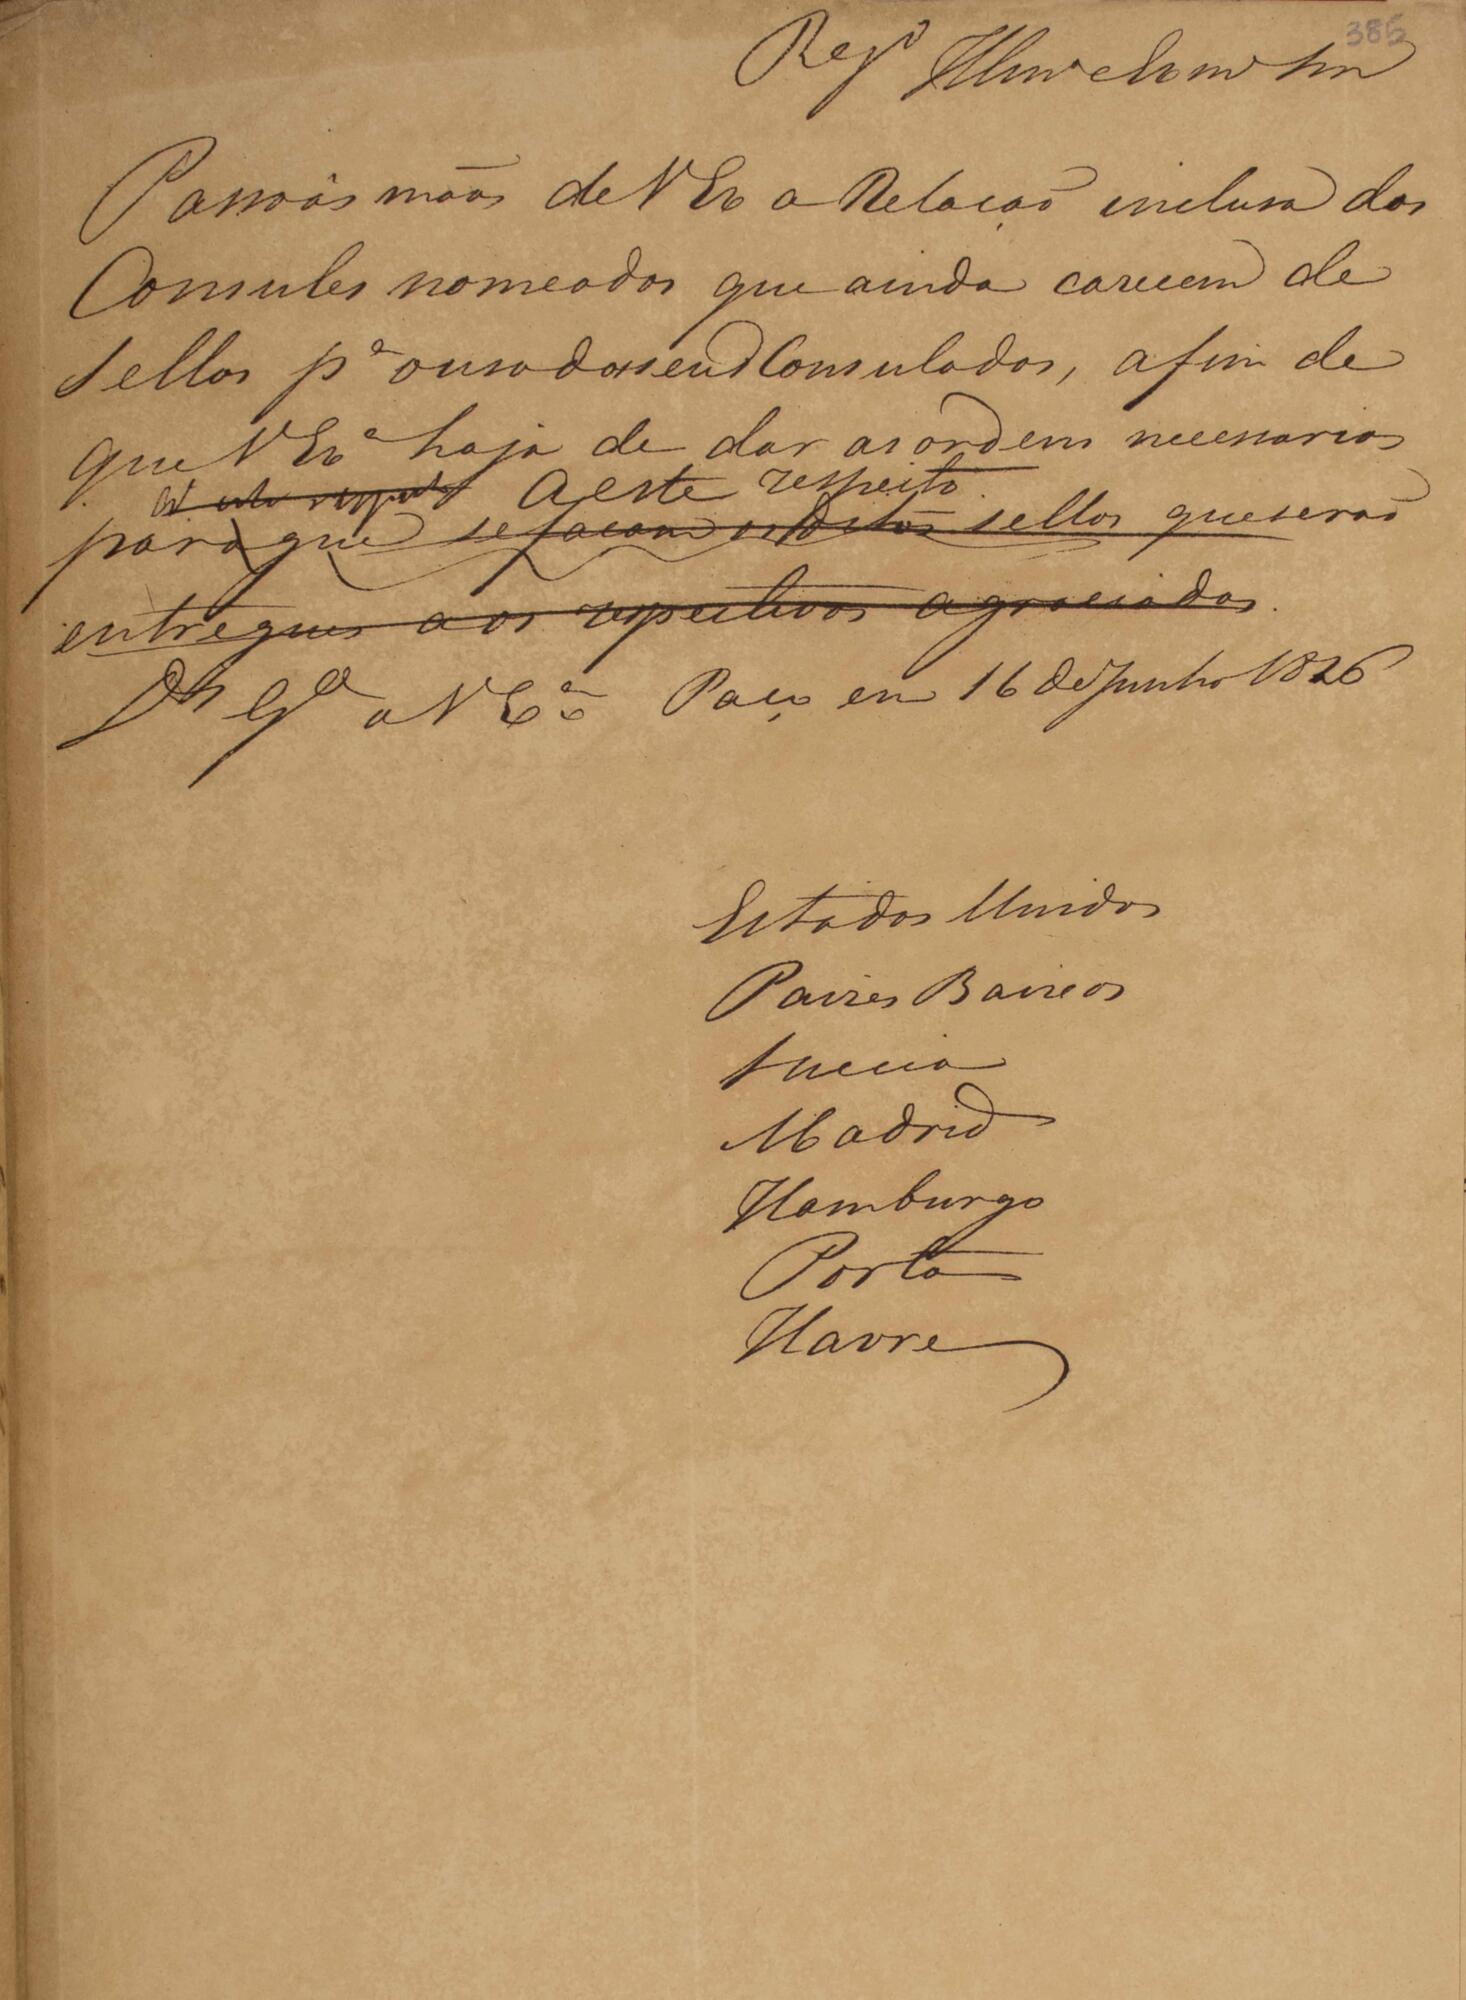 385
Reg.º Illm.º e Exm.º Snr
Passo ás mãos de V Ex a Relação inclusa dos
Consules nomeados que ainda carecem de
sellos pª o uso dos seus Consulados, afim de
que V Exª haja de dar as ordens necessarias
a este respeito A este respeito.
para que se facam os ditos sellos que serão
entregues aos respectivos agraciados.
Ds Gde a V Exª Paço em 16 de Junho 1826
Estados Unidos
Paizes Baixos
Suecia
Madrid
Hamburgo
Porto
Havre